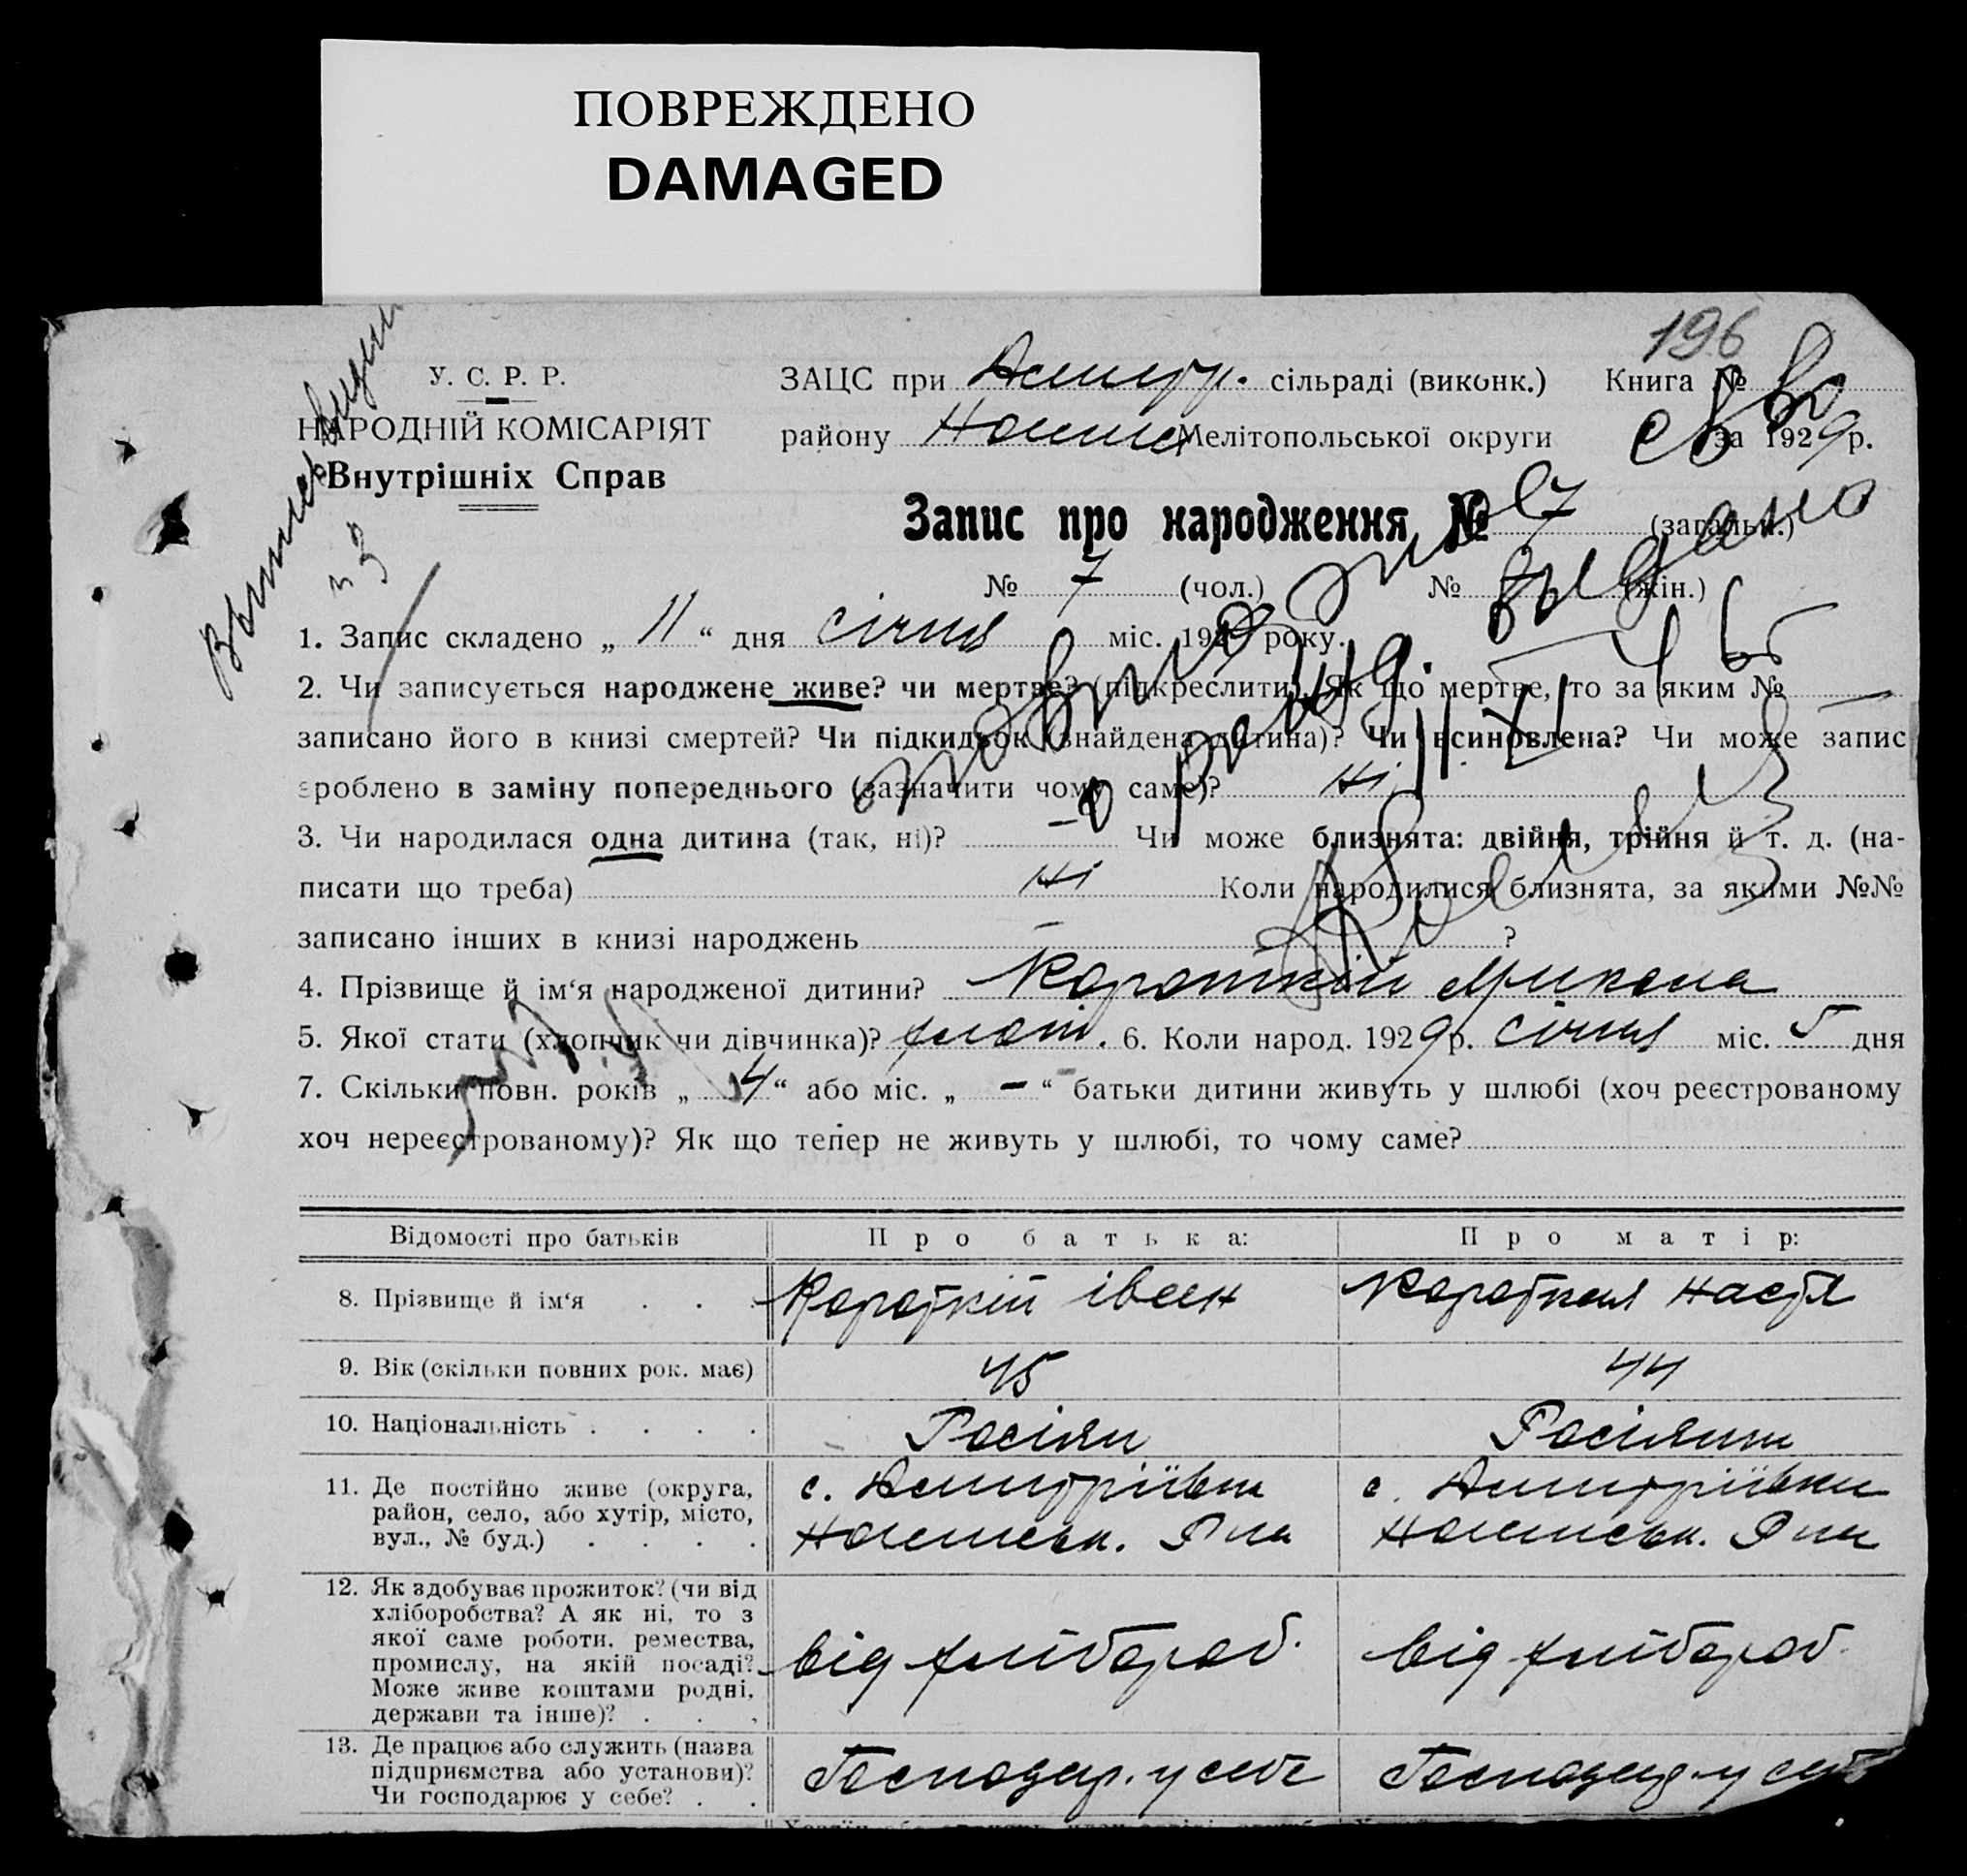 ПОВРЕЖДЕНО
DAMAGED
196
У. С. Р. Р.
НАРОДНІЙ КОМІСАРІЯТ
Внутрішніх Справ
ЗАЦС при сільраді (виконк.) Книга №
району Мелітопольської округи за 1929 р.
Запис про народження № 7 (загальн.)
№ 7 (чол.) № (жін.)
1. Запис складено „ 11 “ дня січня міс. 1929 року.
2. Чи записується народжене живе? чи мертве? (підкреслити). Як що мертве, то за яким № —
записано його в книзі смертей? Чи підкидьок (знайдена дитина)? Чи всиновлена? Чи може запис
зроблено в заміну попереднього (зазначити чому саме)? Ні
3. Чи народилася одна дитина (так, ні)? — Чи може близнята: двійня, трійня й т. д. (на-
писати що треба) Ні Коли народилися близнята, за якими №№
записано інших в книзі народжень — ?
4. Прізвище й ім‘я народженої дитини? Короткій Микола
5. Якої стати (хлопчик чи дівчинка)? хлопч. 6. Коли народ. 1929 р. січня міс. 5 дня
7. Скільки повн. років „ “ або міс. „ — “ батьки дитини живуть у шлюбі (хоч реєстрованому
хоч нереєстрованому)? Як що тепер не живуть у шлюбі, то чому саме?
Відомості про батьків Про батька: Про матір:
8. Прізвище й ім‘я . . . Короткій Іван Короткая Настя
9. Вік (скільки повних рок. має) 45 44
10. Національність . . . . Росіян Росіянка
11. Де постійно живе (округа,
район, село, або хутір, місто,
вул., № буд.) . . . .
с. Дмитрівка
с. Дмитрівка
12. Як здобуває прожиток? (чи від
хліборобства? А як ні, то з
якої саме роботи, ремества,
промислу, на якій посаді?
Може живе коштами родні,
держави та інше)? . . .
від хлібороб. від хлібороб.
13. Де працює або служить (назва
підприємства або установи)?
Чи господарює у себе? . .
Господар. у себе Господар. у себе